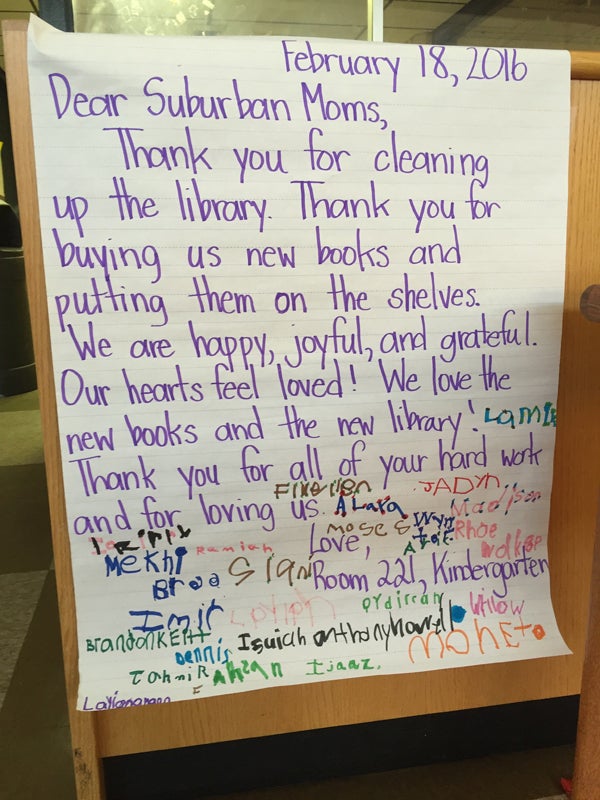 February 18, 2016
Dear Suburban Moms,
Thank you for cleaning
up the library. Thank you for
buying us new books and
putting them on the shelves.
We are happy, joyful, and grateful.
Our hearts feel loved! We love the
new books and the new library!
Thank you for all of your hard work
and for loving us.
JADYn
ALara
Madison
moses
Wyn
Rhoe
Love,
walker
Mekhi
Ramiah
Bree
Room 221, Kindergarten
Imir
Willow
BrandonKEitt
Isaiah anthony
Dennis
TahmiR
Ahsan
Ijaaz.